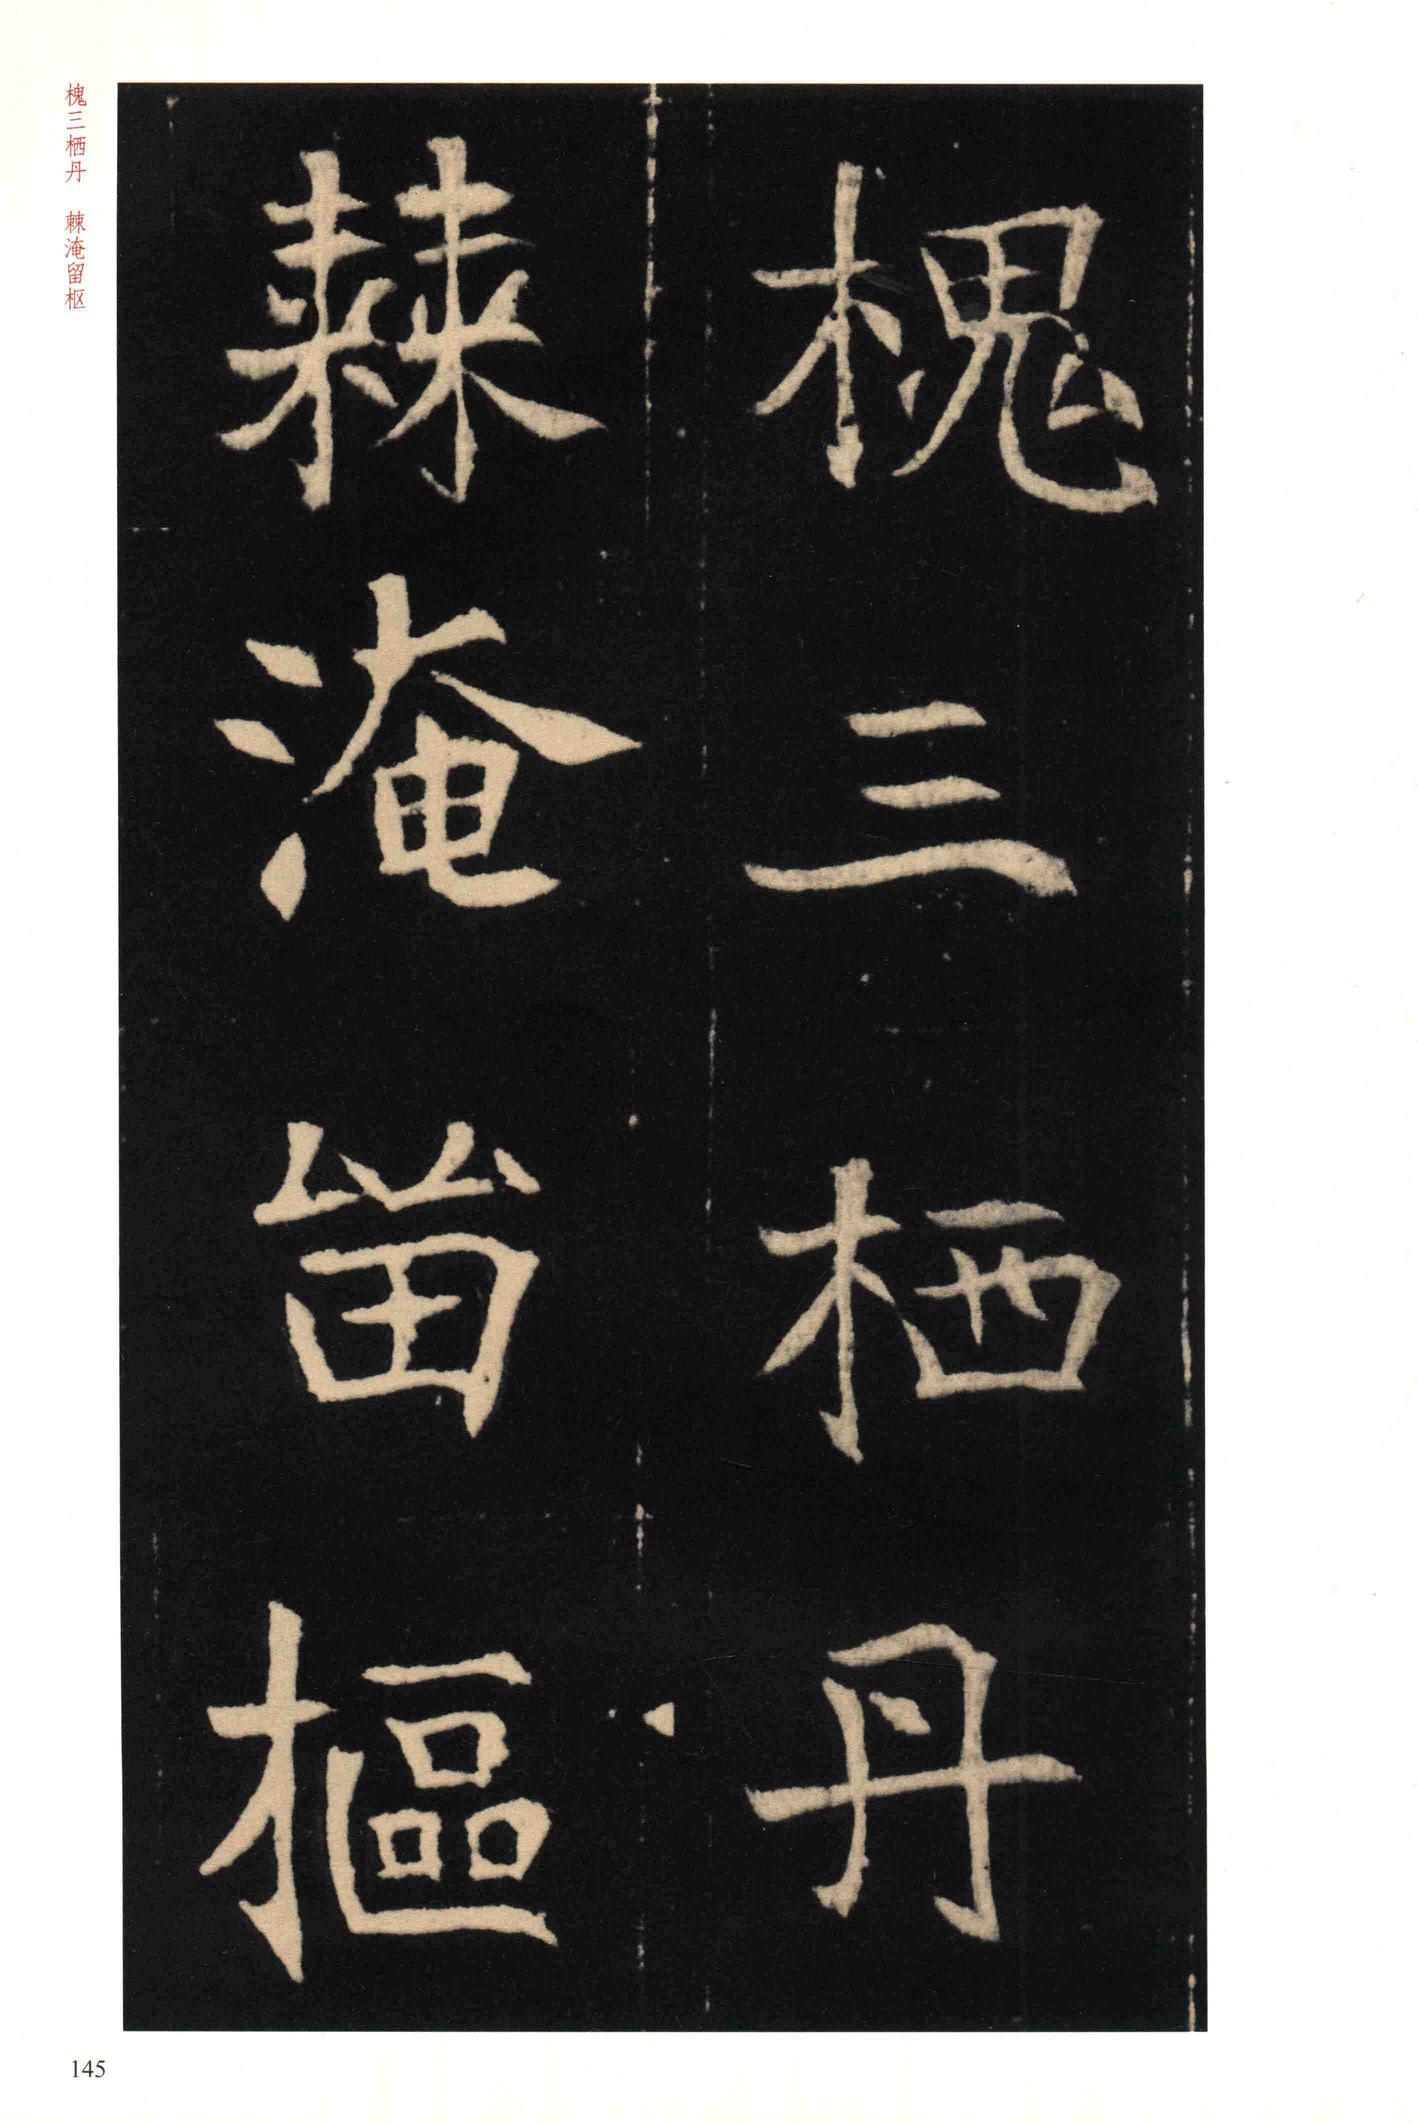 槐三栖丹
棘淹留樞
槐三栖丹 棘淹留枢
145